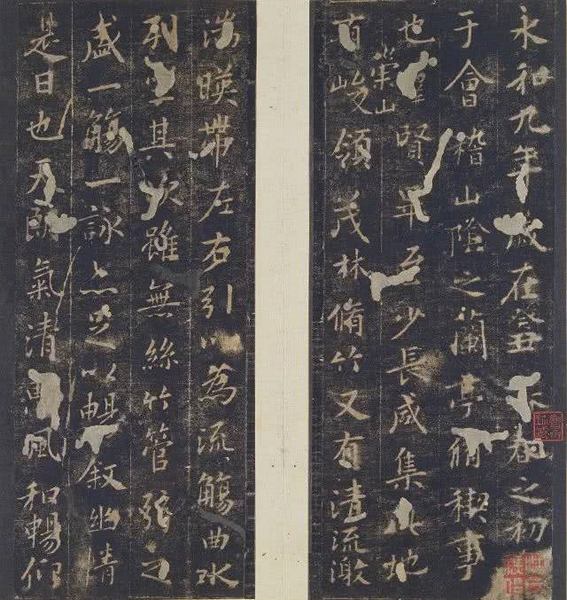 永和九年歲在癸丑暮春之初
于會稽山陰之蘭亭脩稧事
也群賢畢至少長咸集此地
有崇山峻領茂林脩竹又有清流激
湍暎帶左右引以為流觴曲水
列坐其次雖無絲竹管弦之
盛一觴一詠亦足以暢叙幽情
是日也天朗氣清惠風和暢仰